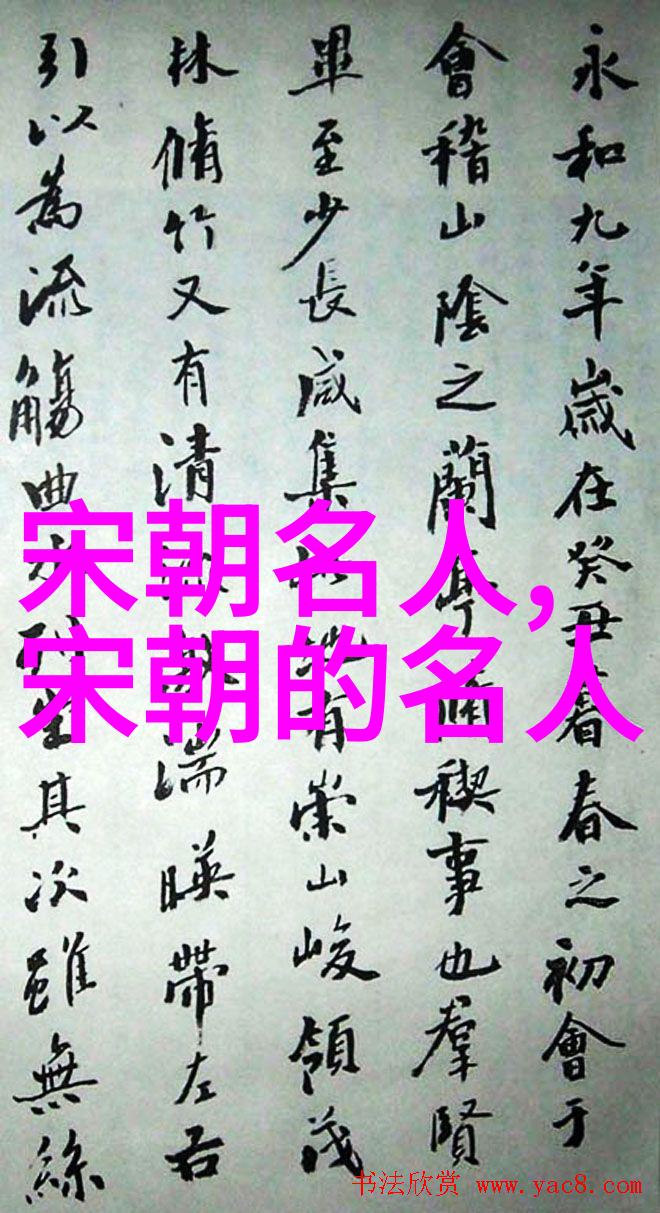 永和九年歲在癸丑暮春之初會于
會稽山陰之蘭亭脩稧事也羣賢
畢至少長咸集此地有崇山峻領茂
林脩竹又有清流激湍暎帶左右
引以為流觴曲水列坐其次雖無絲
宋朝名人,
宋朝的名人
书法欣赏 www.yac8.com